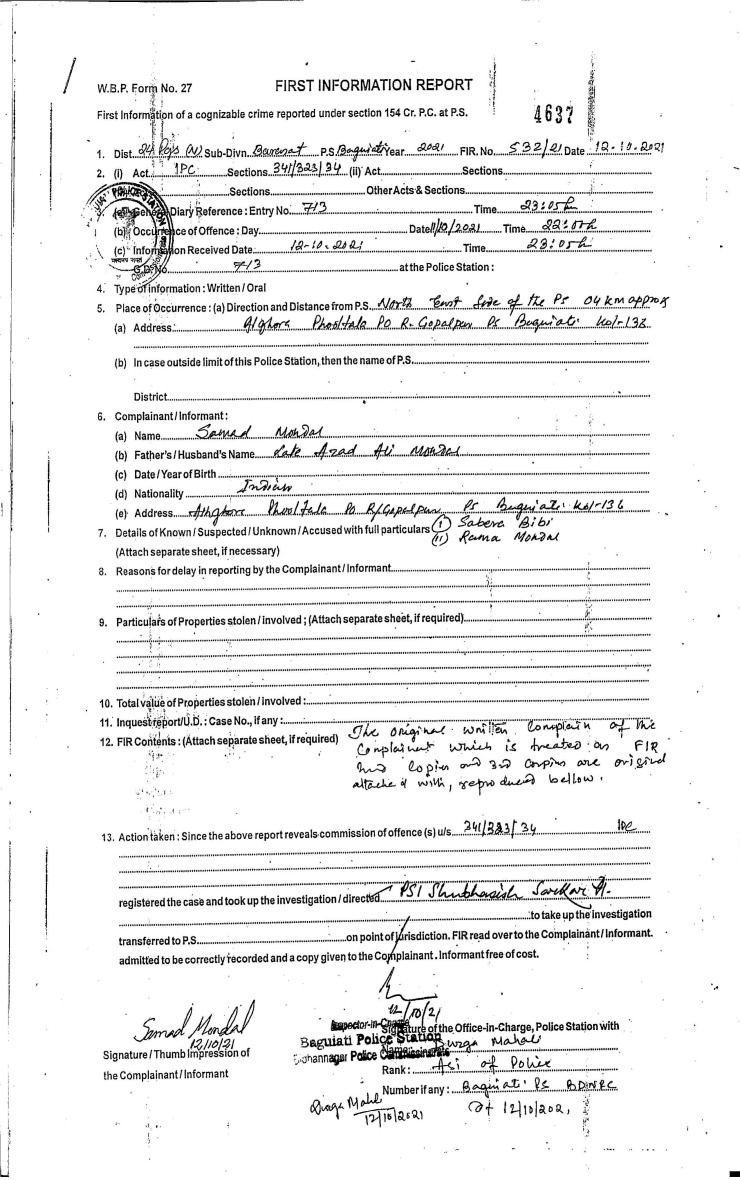 W.B.P. Form No. 27
FIRST INFORMATION REPORT
First Information of a cognizable crime reported under section 154 Cr. P.C. at P.S.
4637
1. Dist. 24 Pgs (N) Sub-Divn. Barasat P.S Baguiati Year 2021 FIR. No. 532/21 Date 12-10-2021
2. (i) Act IPC Sections 341/323/34 (ii) Act Sections
Sections Other Acts & Sections
3. (a) General Diary Reference : Entry No. 713 Time 23:05h
(b) Occurrence of Offence : Day Date 11/10/2021 Time 22:05h
(c) Information Received Date 12-10-2021 Time 23:05h
G.D. No. 713 at the Police Station :
4. Type of information : Written / Oral
5. Place of Occurrence : (a) Direction and Distance from P.S. North East Side of the PS 04 km approx
(a) Address : Phooltala PO R. Gopalpur PS Baguiati Kol-136
(b) In case outside limit of this Police Station, then the name of P.S.
District
6. Complainant / Informant :
(a) Name Samad Mondal
(b) Father's / Husband's Name Late Azad Ali Mondal
(c) Date / Year of Birth
(d) Nationality Indian
(e) Address Phooltala PO R/Gopalpur PS Baguiati Kol-136
7. Details of Known / Suspected / Unknown / Accused with full particulars (i) Sabera Bibi
(Attach separate sheet, if necessary) (ii) Rama Mondal
8. Reasons for delay in reporting by the Complainant / Informant
9. Particulars of Properties stolen / involved ; (Attach separate sheet, if required)
10. Total value of Properties stolen / involved :
11. Inquest report/U.D. : Case No., if any :
12. FIR Contents : (Attach separate sheet, if required) The original written complain of the
complainent which is treated as FIR
and copies are origind
attached with, reproduced bellow.
13. Action taken : Since the above report reveals commission of offence (s) u/s. 341/323/34 IPC
registered the case and took up the investigation / directed PSI Shubhasish Sarkar
to take up the investigation
transferred to P.S. on point of jurisdiction. FIR read over to the Complainant / Informant.
admitted to be correctly recorded and a copy given to the Complainant. Informant free of cost.
12/10/21
Samad Mondal
12/10/21
Signature / Thumb Impression of
the Complainant / Informant
Inspector-in-Charge
Signature of the Office-in-Charge, Police Station with
Baguiati Police Station
Name: Durga Mahali
Bidhannagar Police Commissionerate
Rank : Asi of Police
Number if any : Baguiati PS BDNPC
12/10/2021
12/10/2021